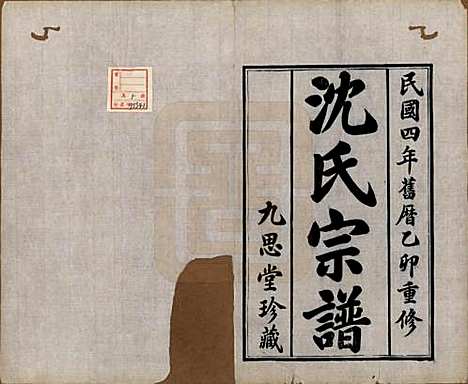 民國四年舊曆乙卯重修
沈氏宗譜
九思堂珍藏